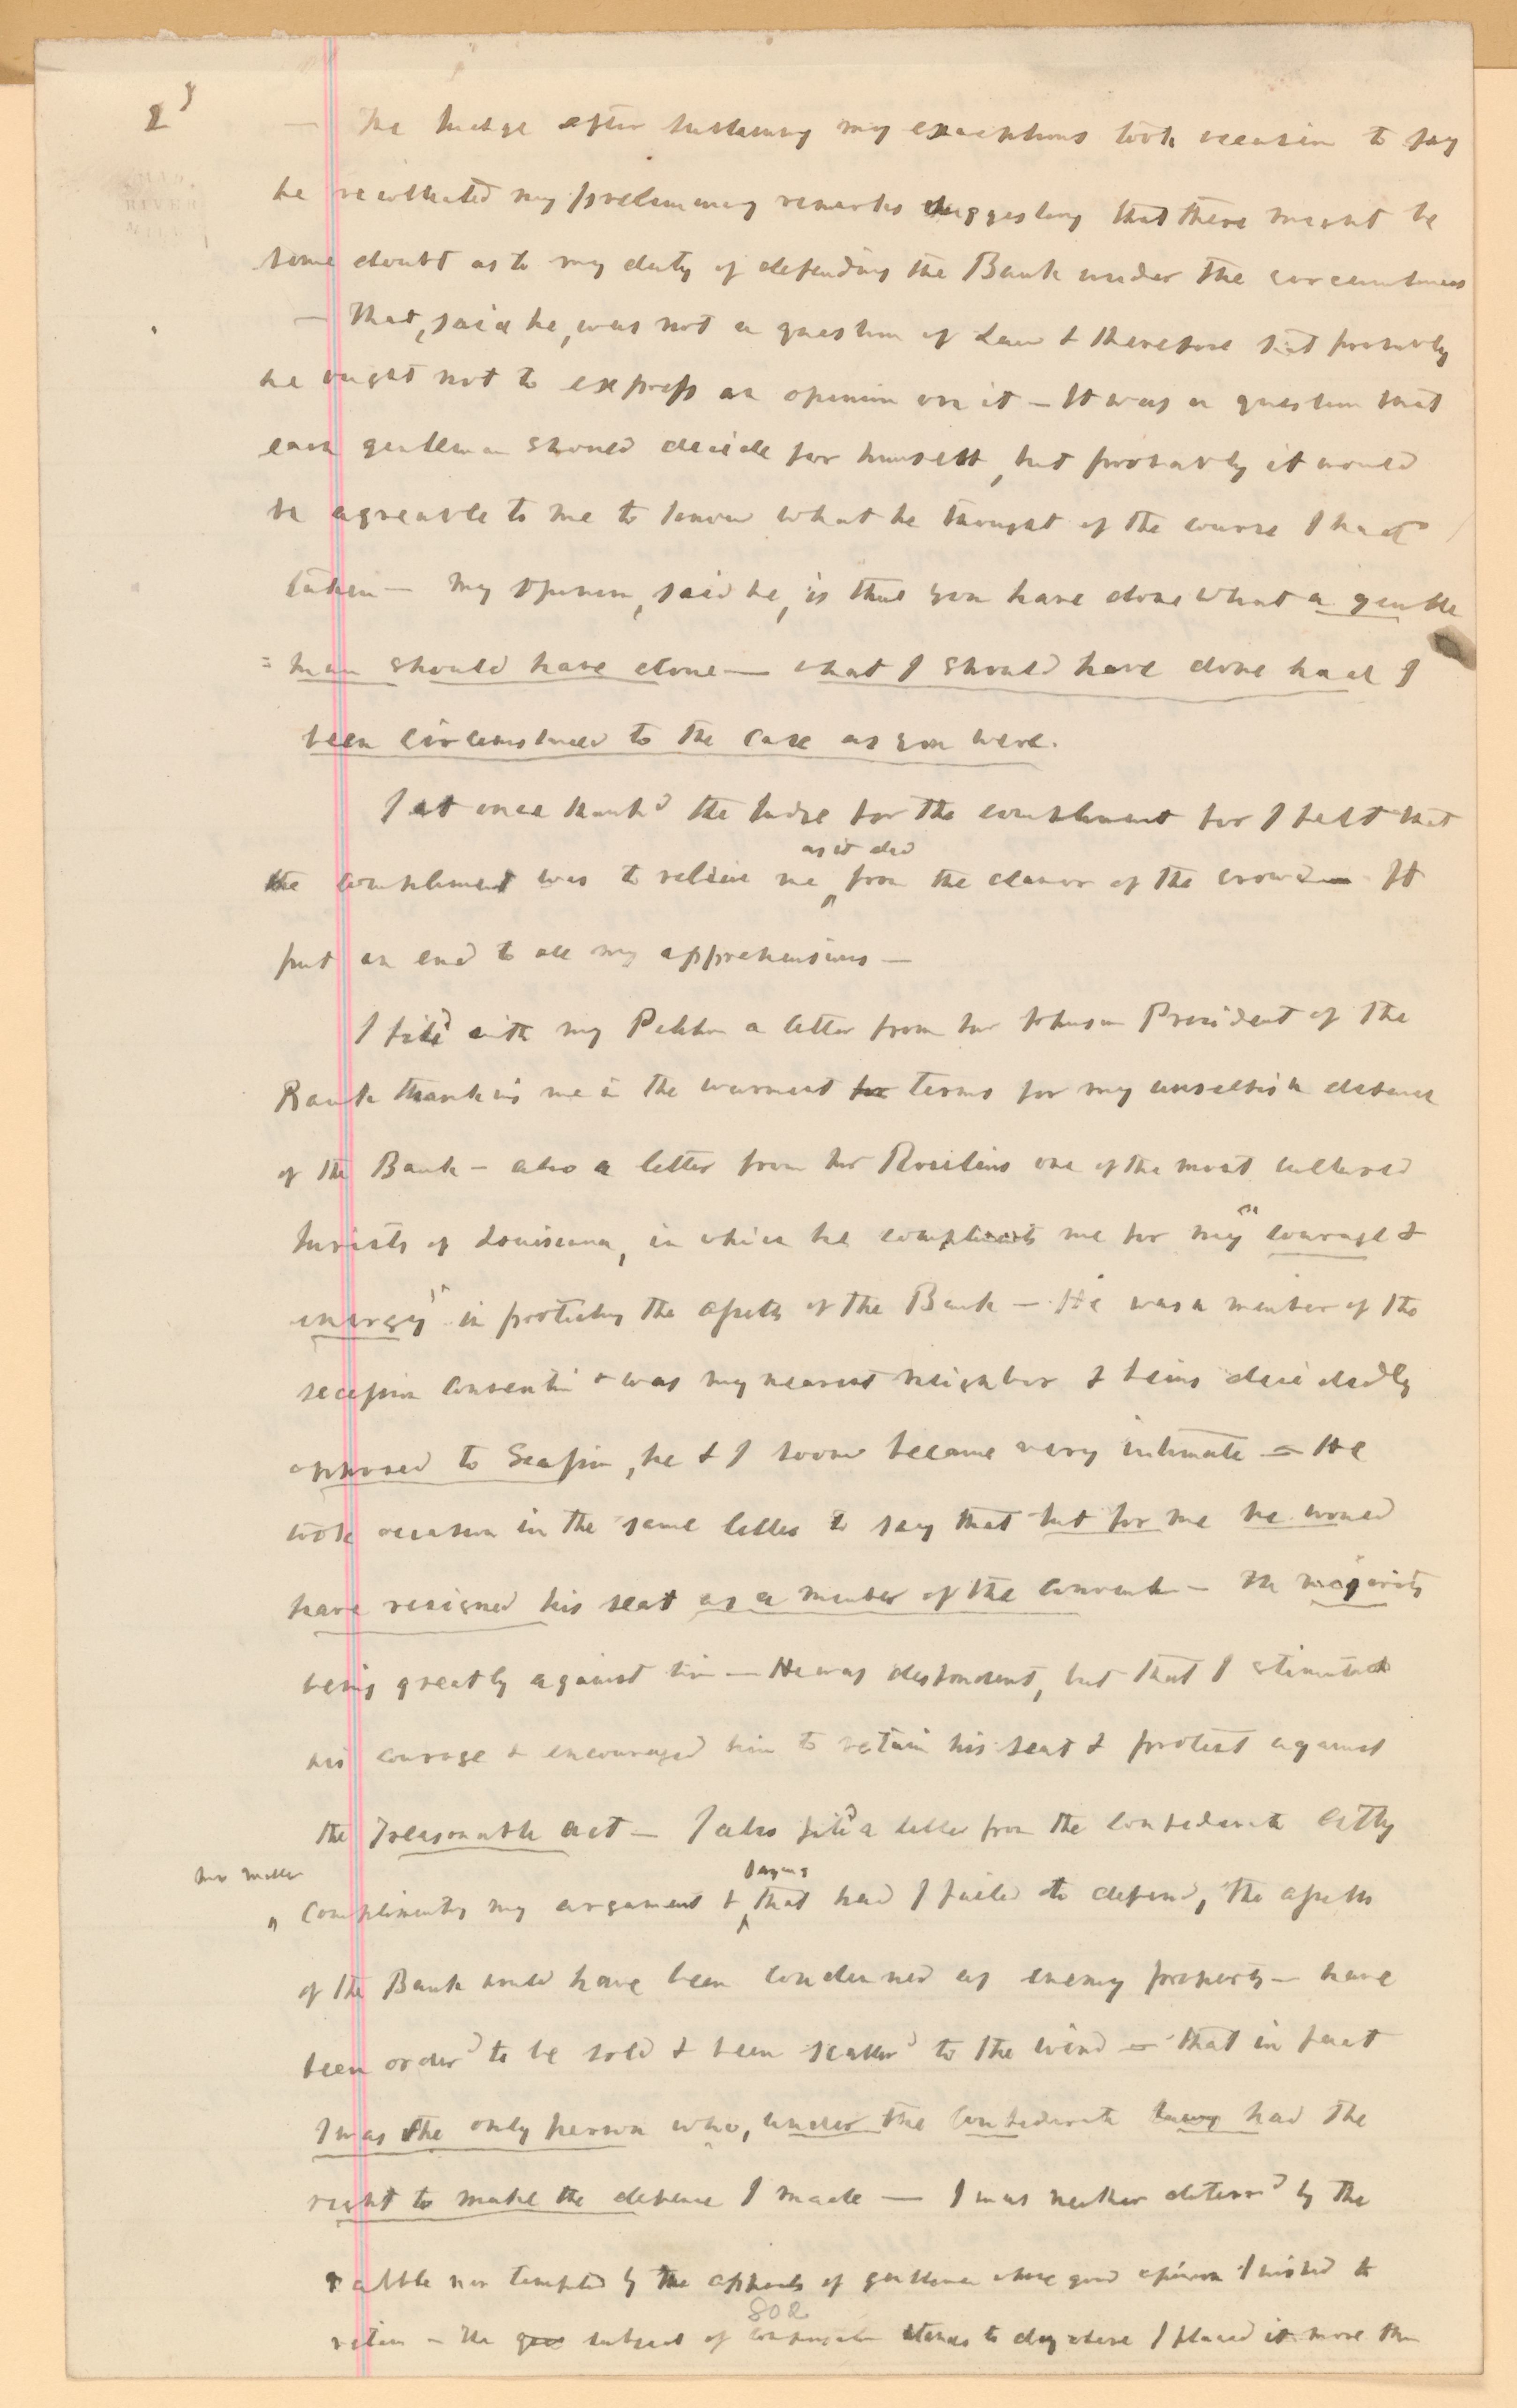 2
— The Judge after sustaining my exceptions took occasion to say
he recollected my preliminary remarks suggesting that there might be
some doubt as to my duty of defending the Bank under the circumstances
— That, said he, was not a question of Law & therefore probably
he ought not to express an opinion on it — It was a question that
each gentleman should decide for himself, but probably it would
be agreable to me to know what he thought of the course I had
taken — My opinion, said he, is that you have done what a gentle
= man should have done — what I should have done had I
been circumstanced to the case as you were.
I at once thankd the Judge for the compliment for I felt that
the compliment was to relieve me as it did from the clamor of the crowd — It
put an end to all my apprehensions —
I filed with my Petition a letter from Mr Johnson President of the
Bank thanking me in the warmest for terms for my unselfish defence
of the Bank — also a letter from Mr Roselius one of the most cultured
Jurists of Louisiana, in which he compliments me for my "courage &
energy" in protecting the assets of the Bank — He was a member of the
secession Convention & was my nearest neighbor & being decidedly
opposed to Secession, he & I soon became very intimate — He
took occasion in the same letter to say that but for me he would
have resigned his seat as a member of the Convention — the majority
being greatly against him — He was despondent, but that I stimulated
his courage & encouraged him to retain his seat & protest against
the Treasonable act — I also filed a letter from the Confederate Atty
Mr Miller complimenting my argument & saying that had I failed to defend, the assets
of the Bank would have been condemned as enemy property — have
been orderd to be sold & been scatterd to the wind — that in fact
I was the only person who, under the Confederate laws had the
right to make the defence I made — I was neither deterrd by the
rabble nor tempted by the appeals of gentlemen whose good opinion I wished to
retain — The subject of stands to day where I placed it more than
802